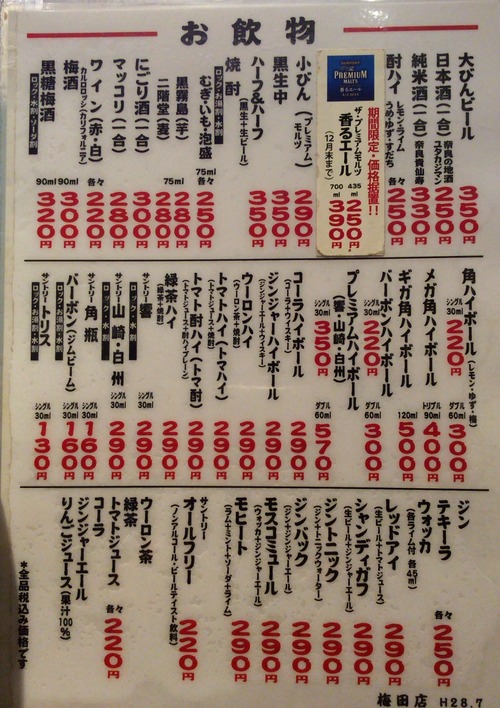 お飲物
大びんビール 350円
日本酒(一合) 奈良の地酒 ユタカジマン 250円
純米酒(一合) 奈良貴仙寿 330円
酎ハイ レモン・ライム うめ・ゆず・すだち 各々 250円
SUNTORY
PREMIUM
MALT'S
香るエール
期間限定・価格据置!!
ザ・プレミアムモルツ
香るエール
(12月末まで)
435ml 250円
700ml 390円
小びん(プレミアムモルツ) 290円
黒生中 350円
ハーフ&ハーフ(黒生+生ビール) 350円
焼酎 ロック・お湯割・水割
むぎ・いも・泡盛 75ml 各々 250円
黒霧島(芋) 288円
二階堂(麦) 75ml 288円
にごり酒(一合) 300円
マッコリ(一合) 280円
ワイン(赤・白) カルロロッシ(カリフォルニア) 各々 220円
梅酒 90ml 300円
黒糖梅酒 90ml 320円
ロック・水割・ソーダ割
角ハイボール(レモン・ゆず・梅) シングル30ml 220円 ダブル60ml 300円
メガ角ハイボール トリプル90ml 400円
ギガ角ハイボール 120ml 500円
バーボンハイボール シングル30ml 220円 ダブル60ml 300円
プレミアムハイボール(響・山崎・白州) シングル30ml 350円 ダブル60ml 570円
コーラハイボール(コーラ+ウイスキー) 290円
ジンジャーハイボール(ジンジャーエール+ウイスキー) 290円
ウーロンハイ(ウーロン茶+焼酎) 290円
トマトハイ(トマハイ)(トマトジュース+焼酎) 290円
トマト酎ハイ(トマ酎)(トマトジュース+酎ハイプレーン) 290円
緑茶ハイ(緑茶+焼酎) 290円
サントリー 響 ロック・水割 シングル30ml 290円
サントリー 山崎・白州 ロック・水割 シングル30ml 290円
サントリー 角瓶 ロック・お湯割・水割 シングル30ml 160円
バーボン(ジムビーム) ロック・お湯割・水割 シングル30ml 160円
サントリー トリス ロック・お湯割・水割 シングル30ml 130円
ジン
テキーラ
ウォッカ
(各ライム付 各45ml)
各々 250円
レッドアイ(生ビール+トマトジュース) 290円
シャンディガフ(生ビール+ジンジャーエール) 290円
ジントニック(ジン+トニックウォーター) 290円
ジンバック(ジン+ジンジャーエール) 290円
モスコミュール(ウォッカ+ジンジャーエール) 290円
モヒート(ラム+ミント+ソーダ+ライム) 290円
サントリー
オールフリー(ノンアルコール・ビールテイスト飲料) 220円
ウーロン茶
緑茶
トマトジュース
コーラ
ジンジャーエール
りんごジュース(果汁100%)
各々 220円
*全品税込み価格です
梅田店 H28.7